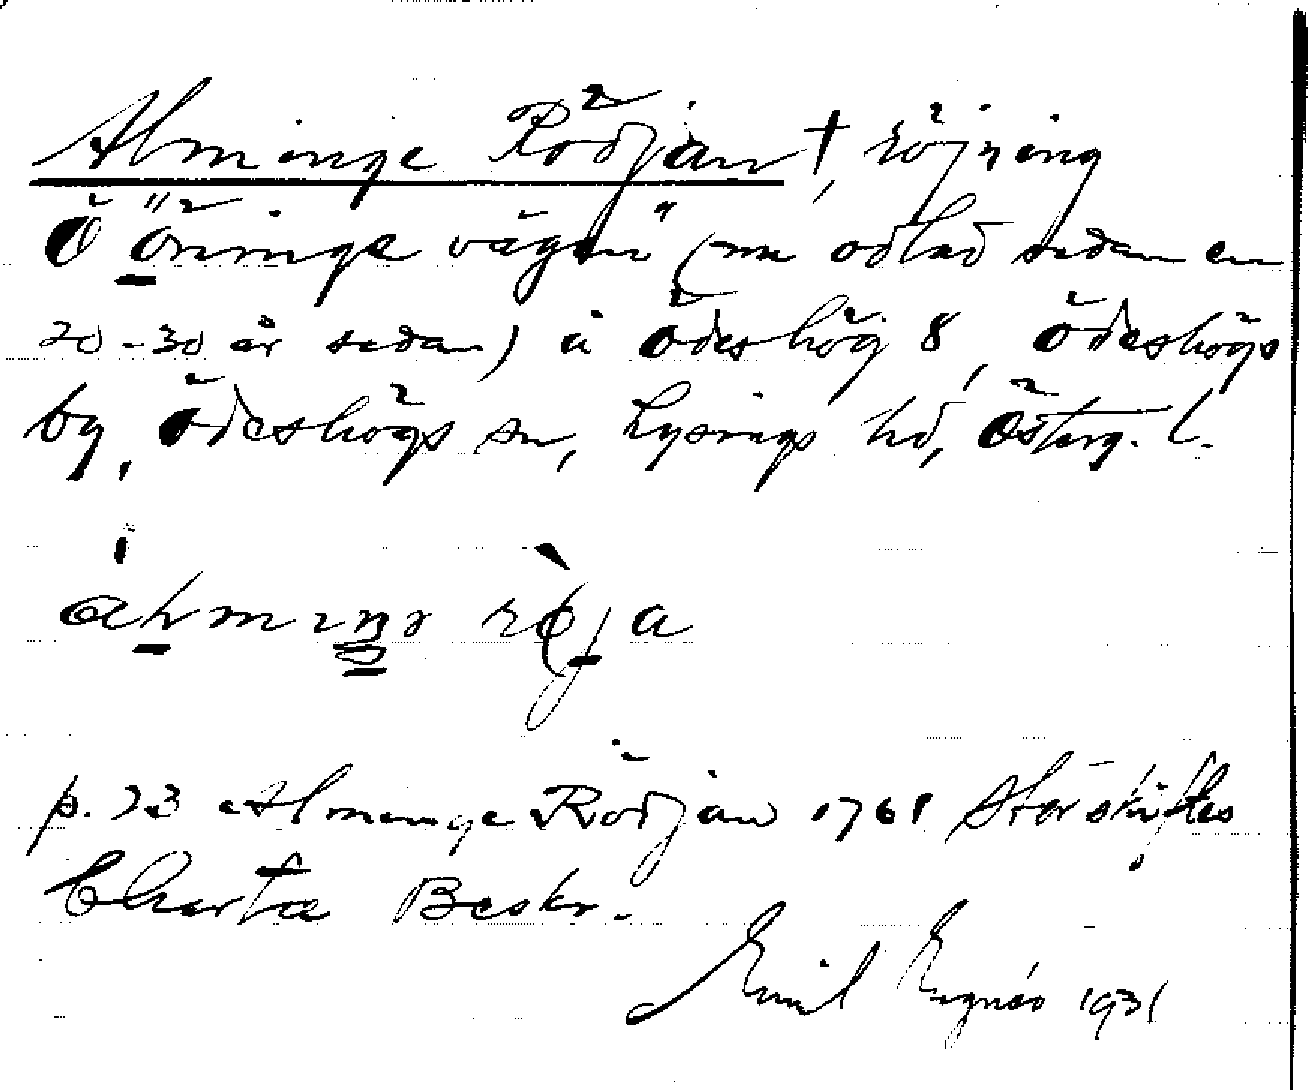 Alminge Rödjan †, röjning
Ö "Öninge vägen" (nu odlad sedan en
20-30 år sedan) å Ödeshög 8, Ödeshögs
by, Ödeshögs sn, Lysings hd, Österg. l.
p. 73 Almenge Rödjan 1768 Storskiftes
Charta Beskr.
Emil Egnéo 1931